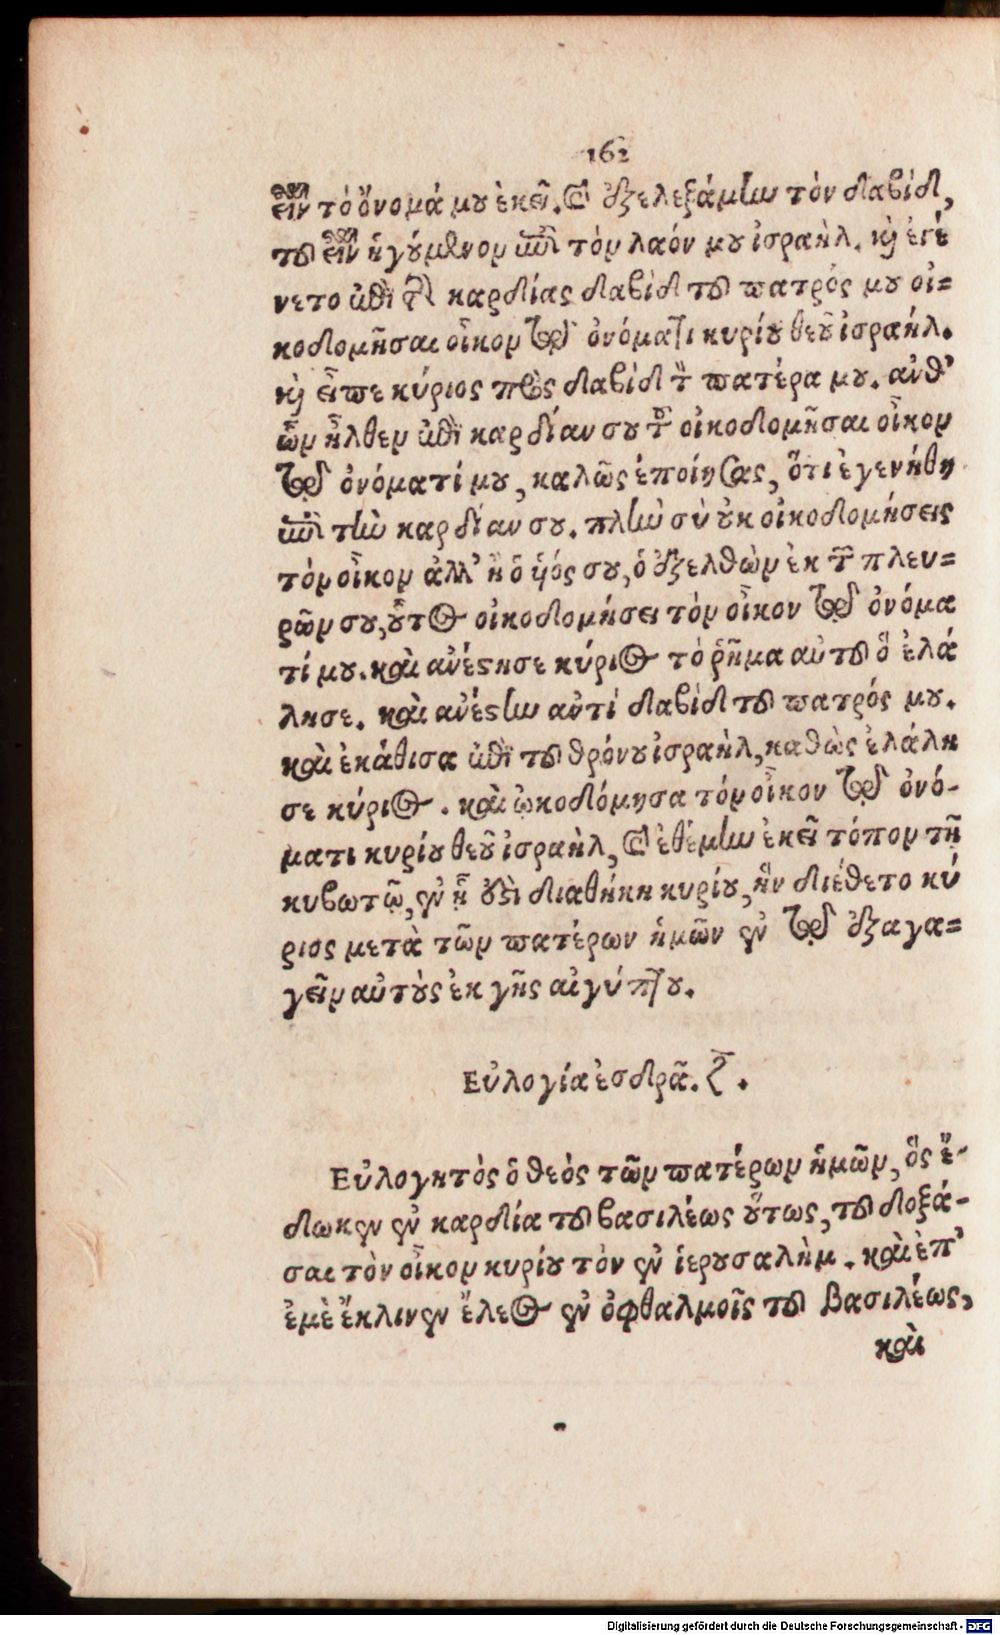 162
εἶναι τὸ ὄνομά μου ἐκεῖ. καὶ ἐξελεξάμην τὸν δαβὶδ,
τοῦ εἶναι ἡγούμενον ἐπὶ τὸν λαόν μου ἰσραὴλ. καὶ ἐγέ
νετο ἐπὶ τῆς καρδίας δαβὶδ τοῦ πατρός μου οἰ=
κοδομῆσαι οἶκον τῷ ὀνόματι κυρίου θεοῦ ἰσραήλ.
καὶ εἶπε κύριος πρὸς δαβὶδ τὸν πατέρα μου. ἀνθ᾽
ὧν ἦλθεν ἐπὶ καρδίαν σου τοῦ οἰκοδομῆσαι οἶκον
τῷ ὀνόματί μου, καλῶς ἐποίησας, ὅτι ἐγενήθη
ἐπὶ τὴν καρδίαν σου. πλὴν σὺ οὐκ οἰκοδομήσεις
τὸν οἶκον ἀλλ᾽ ἢ ὁ υἱός σου, ὁ ἐξελθὼν ἐκ τῶν πλευ=
ρῶν σου, οὗτος οἰκοδομήσει τὸν οἶκον τῷ ὀνόμα
τί μου. καὶ ἀνέστησε κύριος τὸ ῥῆμα αὐτοῦ ὃ ἐλά
λησε. καὶ ἀνέστην ἀντί δαβὶδ τοῦ πατρός μου.
καὶ ἐκάθισα ἐπὶ τοῦ θρόνου ἰσραὴλ, καθὼς ἐλάλη
σε κύριος. καὶ ᾠκοδόμησα τὸν οἶκον τῷ ὀνό-
ματι κυρίου θεοῦ ἰσραὴλ, καὶ ἐθέμην ἐκεῖ τόπον τῇ
κυβωτῷ, ἐν ᾗ ἐστὶ διαθήκη κυρίου, ἣν διέθετο κύ
ριος μετὰ τῶν πατέρων ἡμῶν ἐν τῷ ἐξαγα=
γεῖν αὐτοὺς ἐκ γῆς αἰγύπτου.
Εὐλογία ἐσδρᾶ. ζ.
Εὐλογητὸς ὁ θεὸς τῶν πατέρων ἡμῶν, ὃς ἔ-
δωκεν ἐν καρδία τοῦ βασιλέως οὕτως, τοῦ δοξά-
σαι τὸν οἶκον κυρίου τὸν ἐν ἱερουσαλὴμ. καὶ ἐπ᾽
ἐμὲ ἔκλινεν ἔλεος ἐν ὀφθαλμοῖς τοῦ βασιλέως,
καὶ
Digitalisierung gefördert durch die Deutsche Forschungsgemeinschaft - DFG